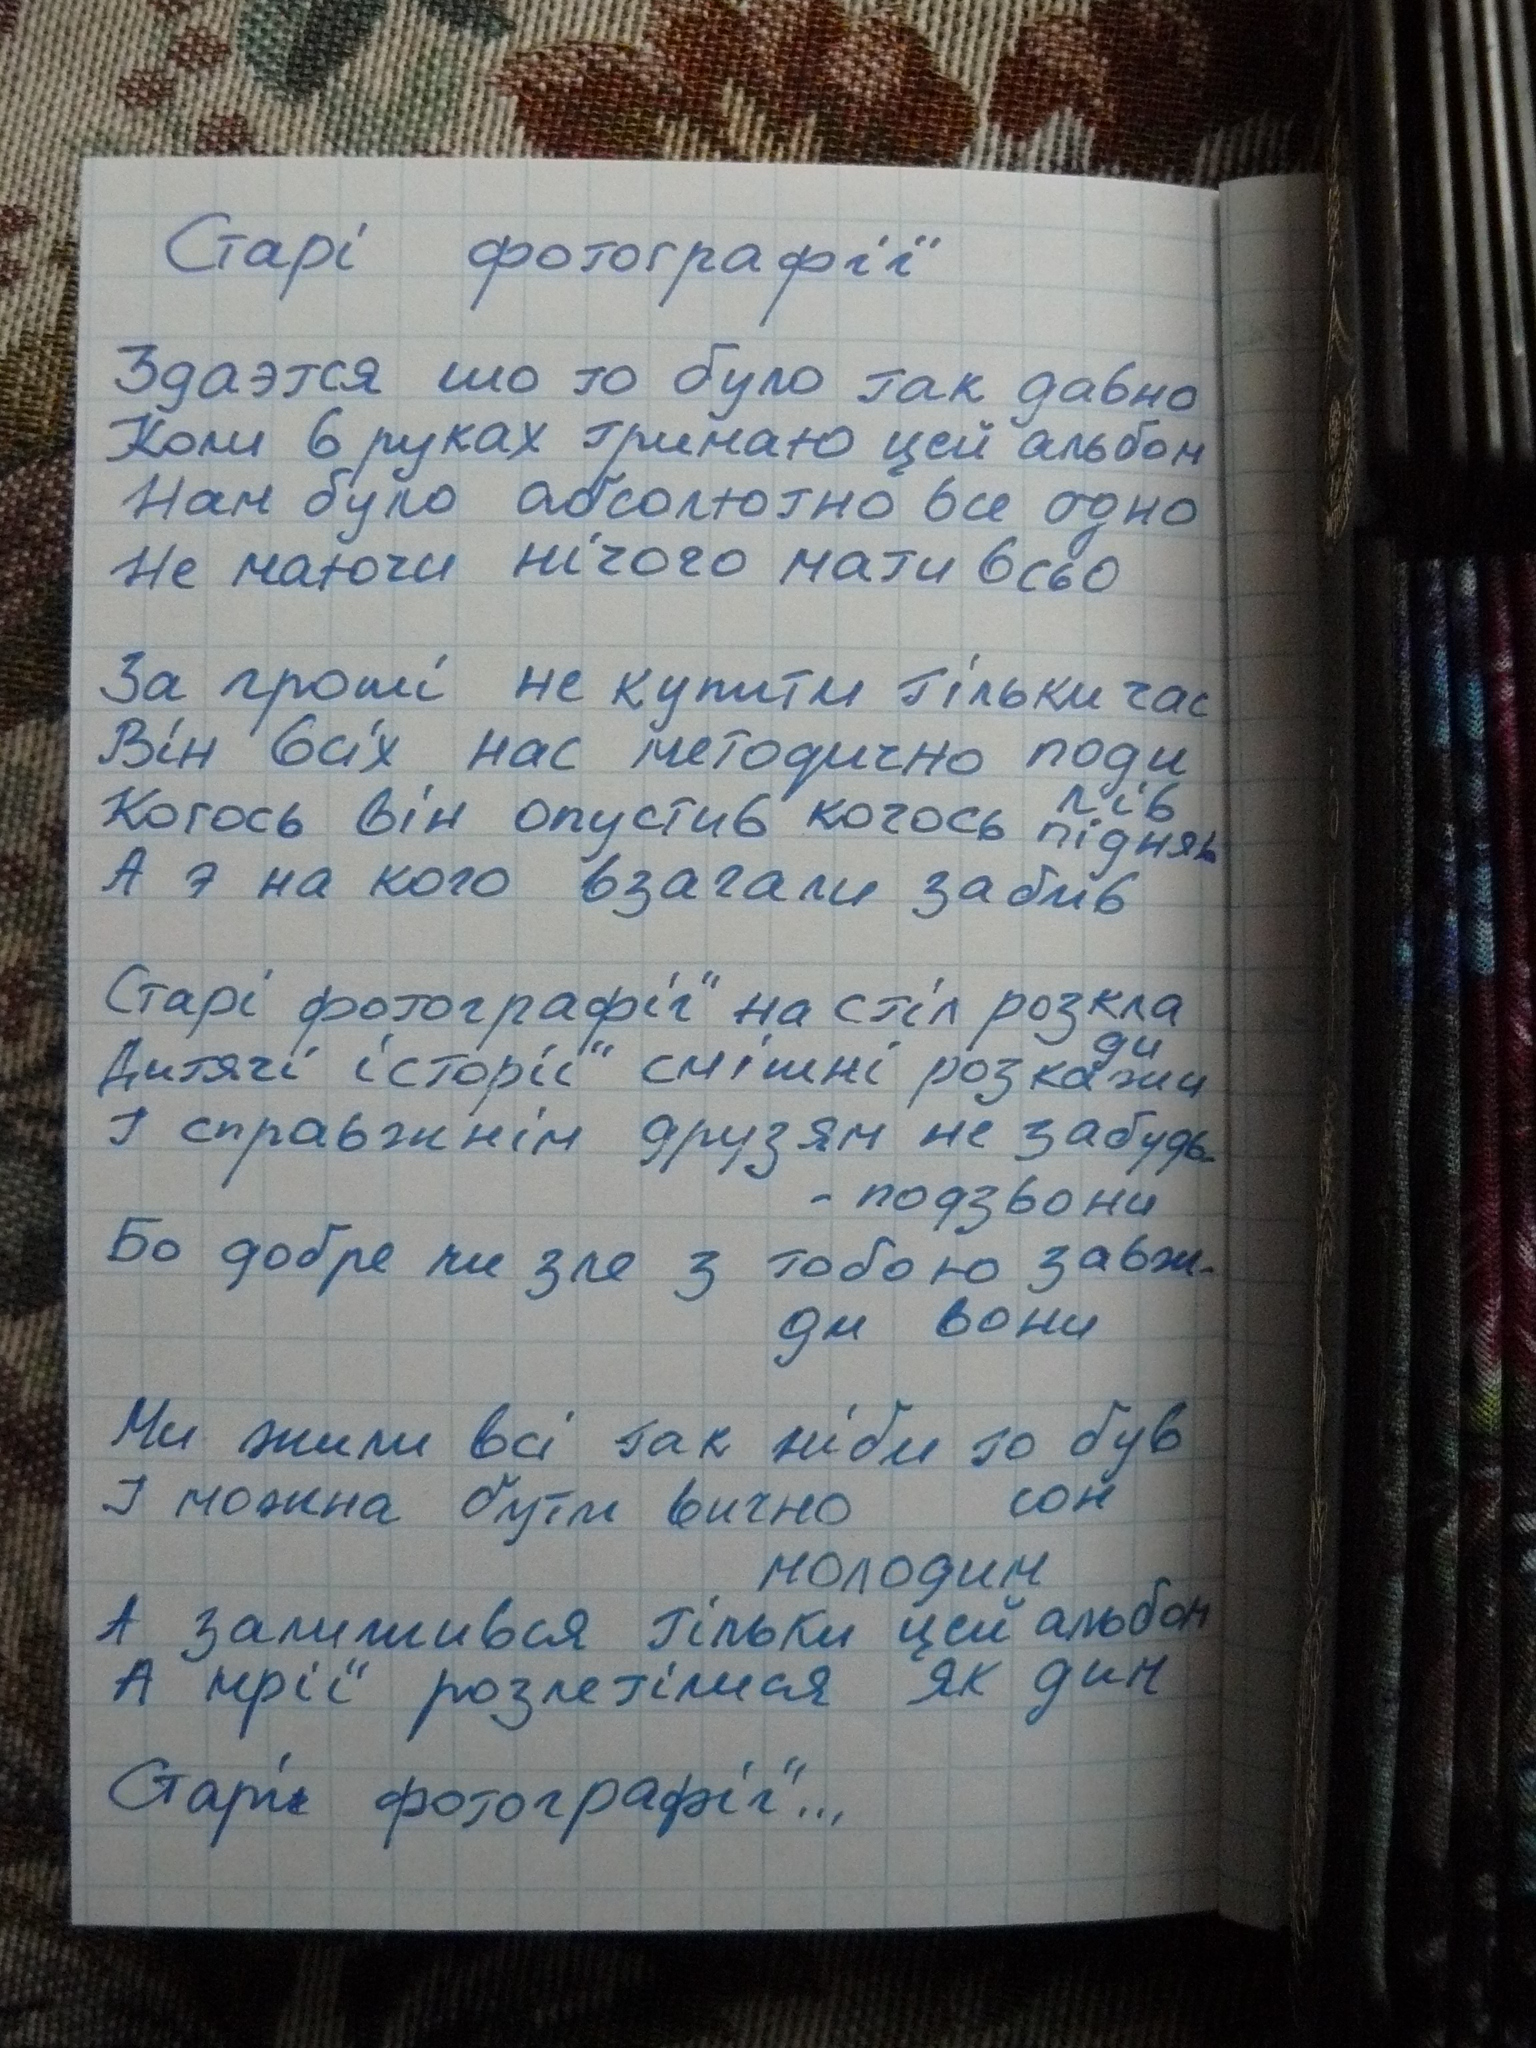 Старі фотографії
Здаэтся шо то було так давно
Коли в руках тримаю цей альбом
Нам було абсолютно все одно
Не маючи нічого мати всьо
За гроші не купити тільки час
Він всіх нас методично поди
лів
Когось він опустив когось підняв
А э на кого взагали забив
Старі фотографії на стіл розкла
ди
Дитячі історії смішні розкажи
І справжнім друзям не забудь-
- подзвони
Бо добре чи зле з тобою завж-
ди вони
Ми жили всі так ніби то був
сон
І можна бути вично
молодим
А залишився тільки цей альбом
А мрії розлетілися як дим
Старі фотографії...